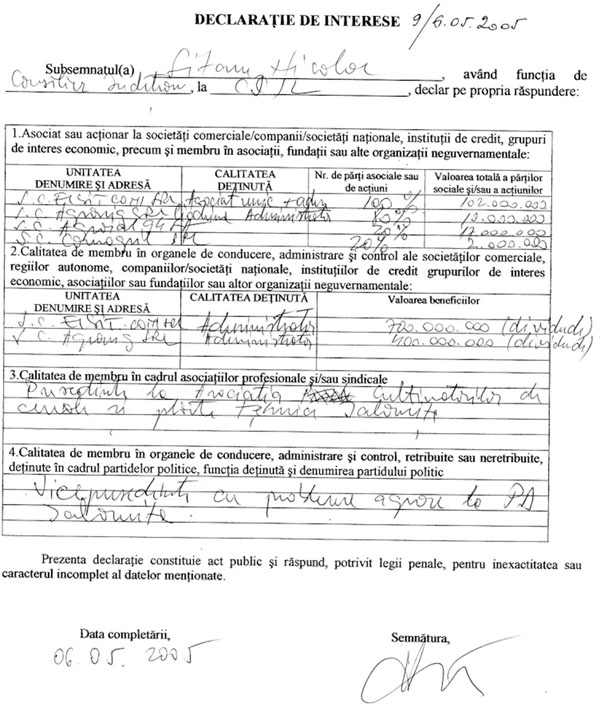 DECLARAŢIE DE INTERESE 9/6.05.2005
Subsemnatul(a) Nicolae, având funcţia de
Consilier Judetean, la CJIL, declar pe propria răspundere:
1.Asociat sau acţionar la societăţi comerciale/companii/societăţi naţionale, instituţii de credit, grupuri
de interes economic, precum şi membru în asociaţii, fundaţii sau alte organizaţii neguvernamentale:
UNITATEA DENUMIRE ŞI ADRESĂ CALITATEA DEŢINUTĂ Nr. de părţi asociale sau de acţiuni Valoarea totală a părţilor sociale şi/sau a acţiunilor
S.C. COM SRL Asociat unic 100% 102.000.000
S.C. SRL Administrator
S.C. 20%
S.C. 20% 2.000.000
2.Calitatea de membru în organele de conducere, administrare şi control ale societăţilor comerciale,
regiilor autonome, companiilor/societăţi naţionale, instituţiilor de credit grupurilor de interes
economic, asociaţiilor sau fundaţiilor sau altor organizaţii neguvernamentale:
UNITATEA DENUMIRE ŞI ADRESĂ CALITATEA DEŢINUTĂ Valoarea beneficiilor
S.C. Administrator 700.000.000
S.C. SRL Administrator 400.000.000
3.Calitatea de membru în cadrul asociaţiilor profesionale şi/sau sindicale
Presedinte la Asociatia Cultivatorilor de
cereale si plante tehnice Ialomita
4.Calitatea de membru în organele de conducere, administrare şi control, retribuite sau neretribuite,
deţinute în cadrul partidelor politice, funcţia deţinută şi denumirea partidului politic
Vicepresedinte cu probleme agrare la
Ialomita
Prezenta declaraţie constituie act public şi răspund, potrivit legii penale, pentru inexactitatea sau
caracterul incomplet al datelor menţionate.
Data completării, Semnătura,
06.05.2005